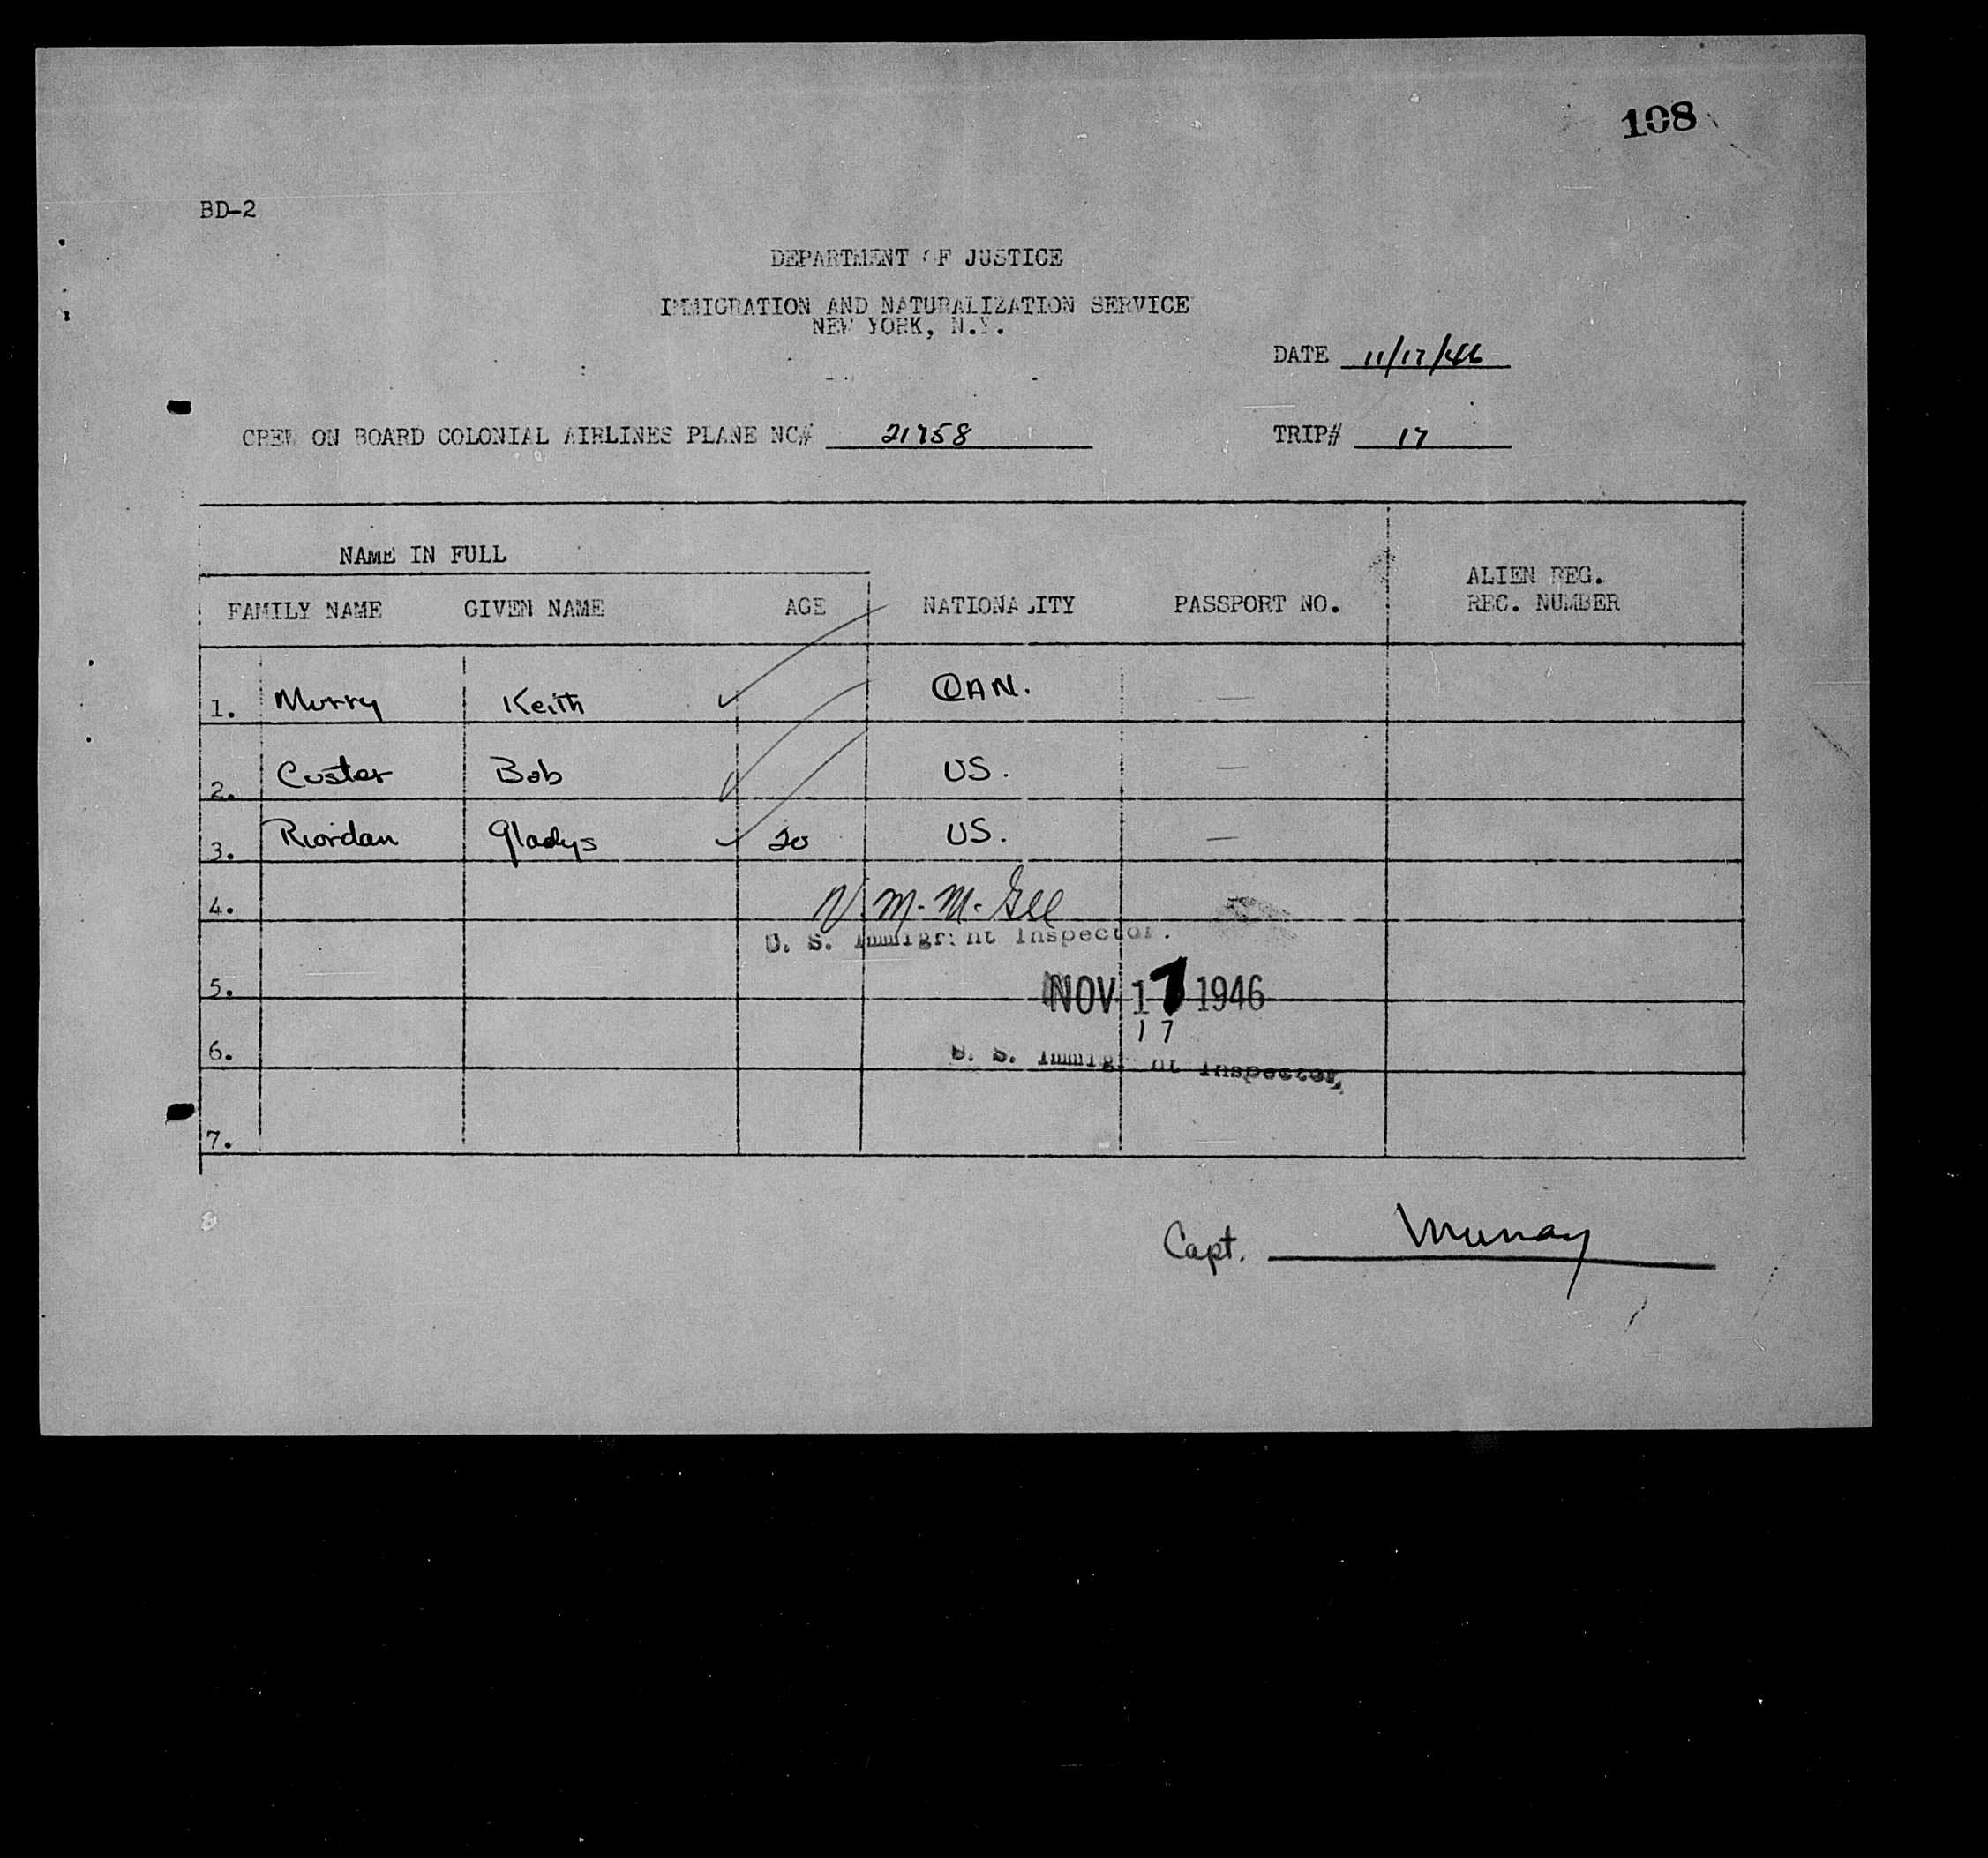 108
BD-2
DEPARTMENT OF JUSTICE
IMMIGRATION AND NATURALIZATION SERVICE
NEW YORK, N.Y.
DATE 11/17/46
CREW ON BOARD COLONIAL AIRLINES PLANE NC# 21758 TRIP# 17
NAME IN FULL
FAMILY NAME GIVEN NAME AGE NATIONALITY PASSPORT NO. ALIEN REG.
REC. NUMBER
1. Murry Keith CAN. —
2. Custer Bob US. —
3. Riordan Gladys 20 US. —
4. M. McGee
U. S. Immigrant Inspector.
5. NOV 17 1946
17
6. U. S. Immigrant Inspector,
7.
Capt. Murray